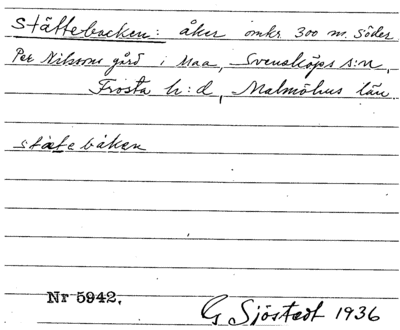 Stättebacken: åker omkr. 300 m. söder
Per Nilssons gård i Maa, Svensköps s:n,
Frosta h:d, Malmöhus län.
stætebakən
Nr 5942.
G Sjöstedt 1936